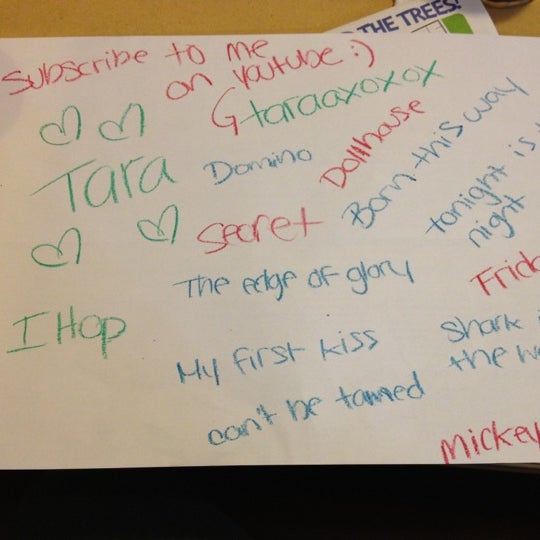 THE TREES!
Subscribe to me
on Youtube :)
Gtaraaxoxox
Tara
Domino
Dollhouse
Born this way
tonight is
night
Secret
The edge of glory
I Hop
My first kiss
Shark
the
can't be tamed
Mickey